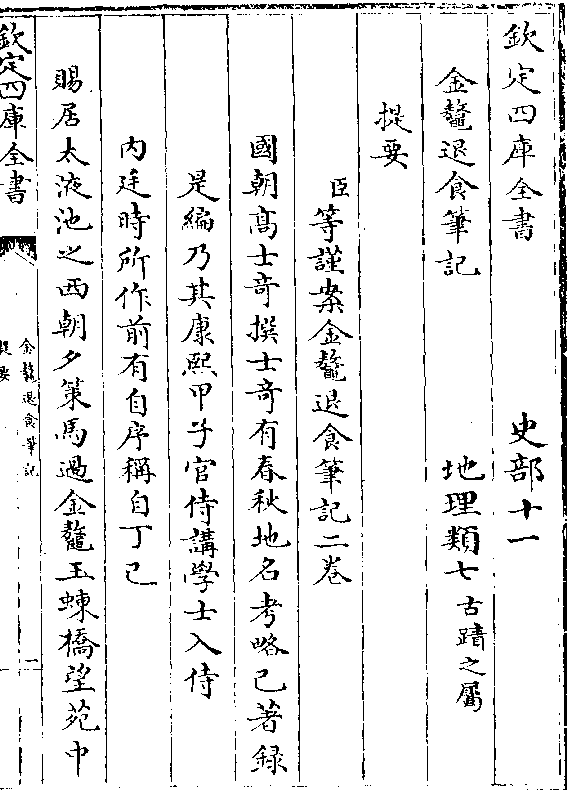 欽定四庫全書　　　　史部十一
金鼇退食筆記　　　　地理類七古蹟之屬
提要
臣等謹案金鼇退食筆記二卷
國朝高士竒撰士竒有春秋地名考略已著録
是編乃其康熙甲子官侍講學士入侍
内廷時所作前有自序稱自丁已
賜居太液池之西朝夕策馬過金鼇玉蝀橋望苑中
欽定四庫全書
金鼇退食筆記
提要
一